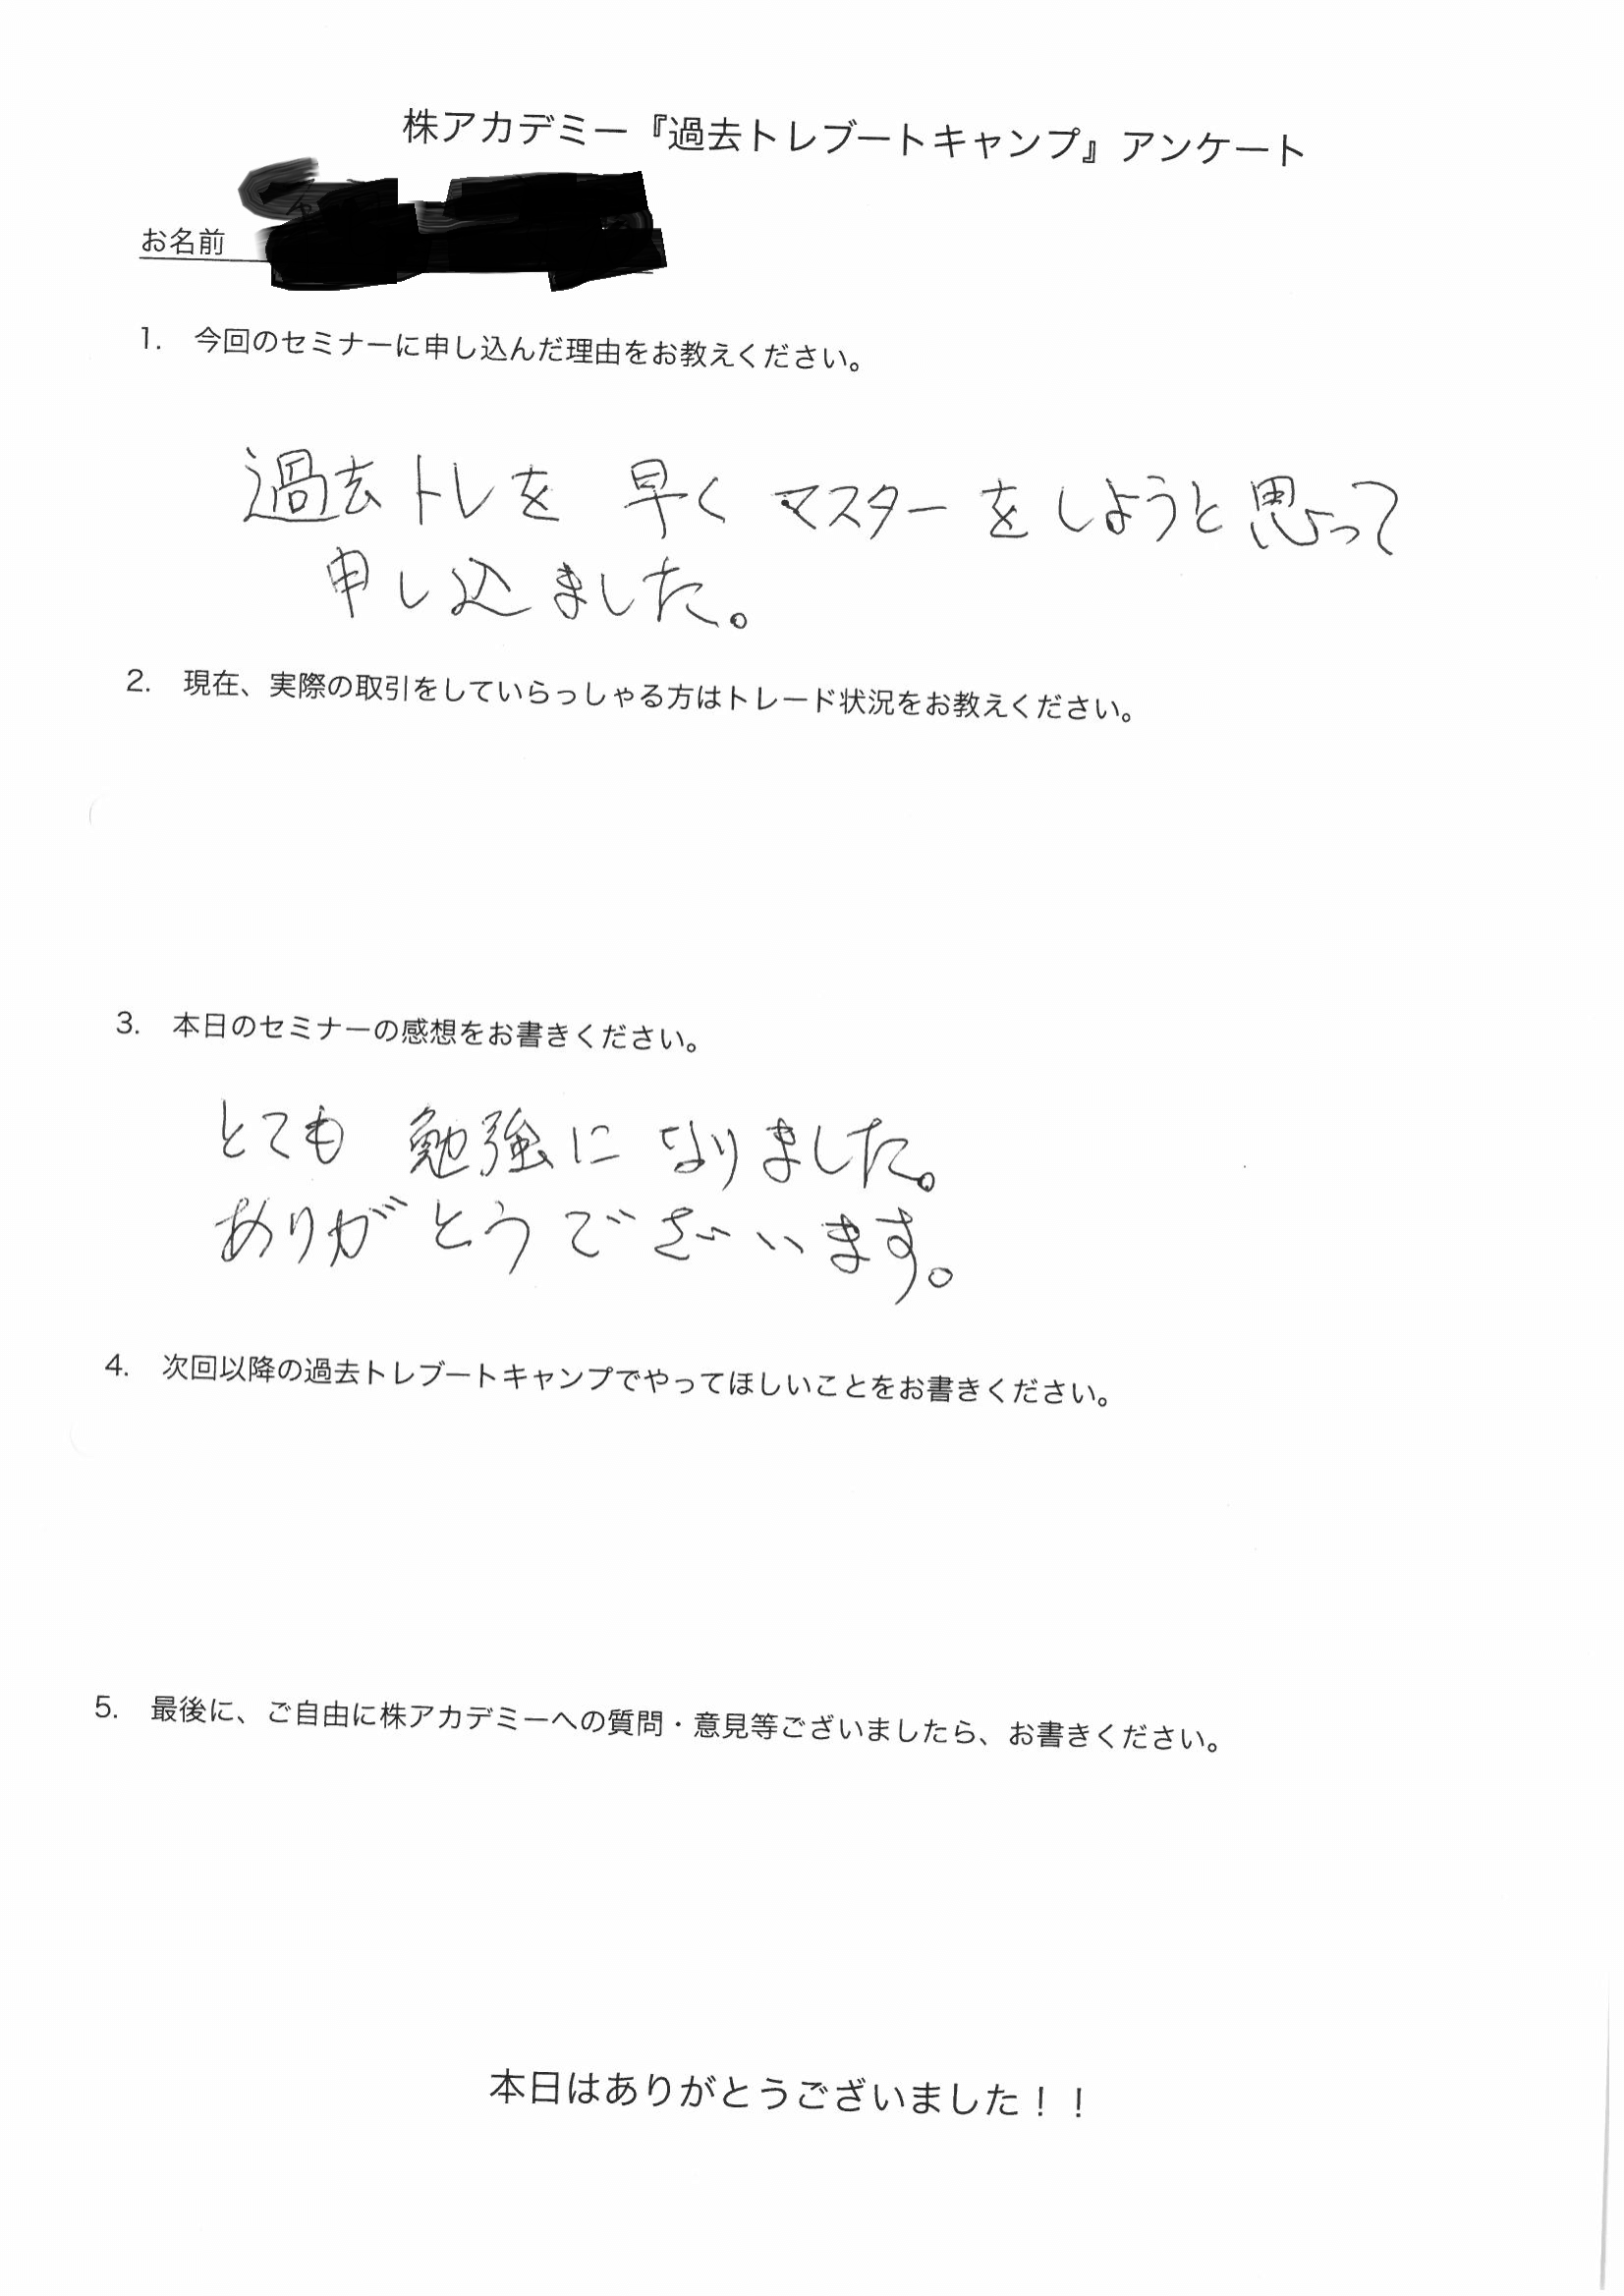 株アカデミー『過去トレブートキャンプ』アンケート
お名前
1. 今回のセミナーに申し込んだ理由をお教えください。
過去トレを 早く マスターをしようと思って
申し込ました。
2. 現在、実際の取引をしていらっしゃる方はトレード状況をお教えください。
3. 本日のセミナーの感想をお書きください。
とても 勉強に なりました。
ありがとうでざいます。
4. 次回以降の過去トレブートキャンプでやってほしいことをお書きください。
5. 最後に、ご自由に株アカデミーへの質問・意見等ございましたら、お書きください。
本日はありがとうございました！！